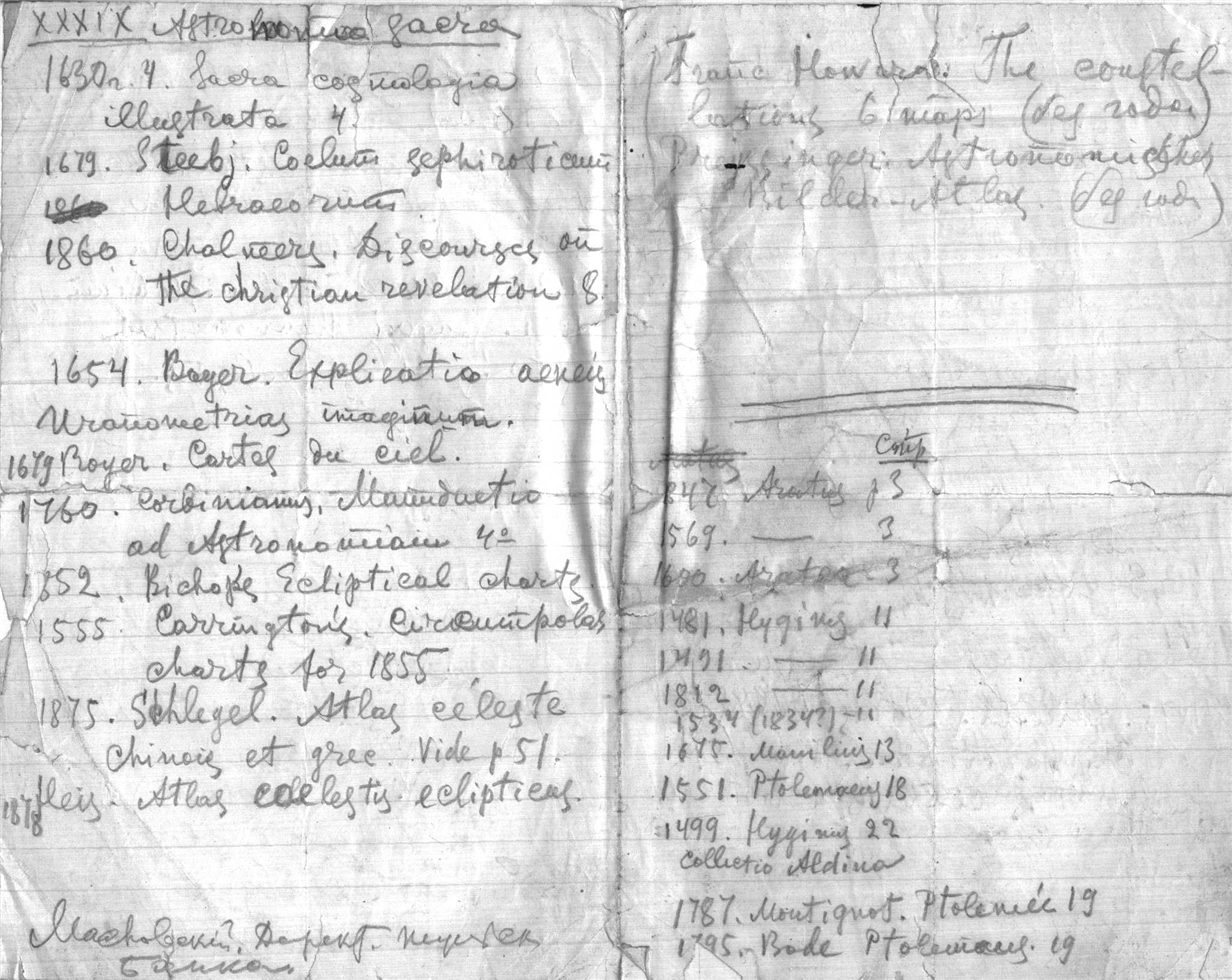 XXXIX Astronomica sacra
1630. 4. Sacra cosmologia
illustrata 4
1679. Steebj. Coelum sephiroticum
Hebraeorum
1860. Chalmers. Discourses on
the christian revelation 8.
1654. Bayer. Explicatio aeneis
Uranometrias imaginum.
1679 Royer. Cartes du ciel.
1760. Corbinianus, Manuductio
ad Astronomiam 4º
1852. Bichop's Ecliptical charts
1555 Carrington's. Circumpolas
charts for 1855
1875. Schlegel. Atlas celeste
Chinois et grec. Vide p 51.
1878 Heis. Atlas coelestis eclipticus.
банка.
Franc Howard: The constel-
lations 6 maps (без года)
Preyssinger. Astronomisches
Bilder-Atlas. (без года)
Aratus
1847. Aratus 3
1569. — 3
1600. Aratea 3
1481. Hyginus 11
1491. — 11
1812 — 11
1534 (1834?) - 11
1675. Manilius 13
1551. Ptolemaeus 18
1499. Hyginus 22
Collectio Aldina
1787. Montignot. Ptolemée 19
1795. Bode Ptolemaeus. 19